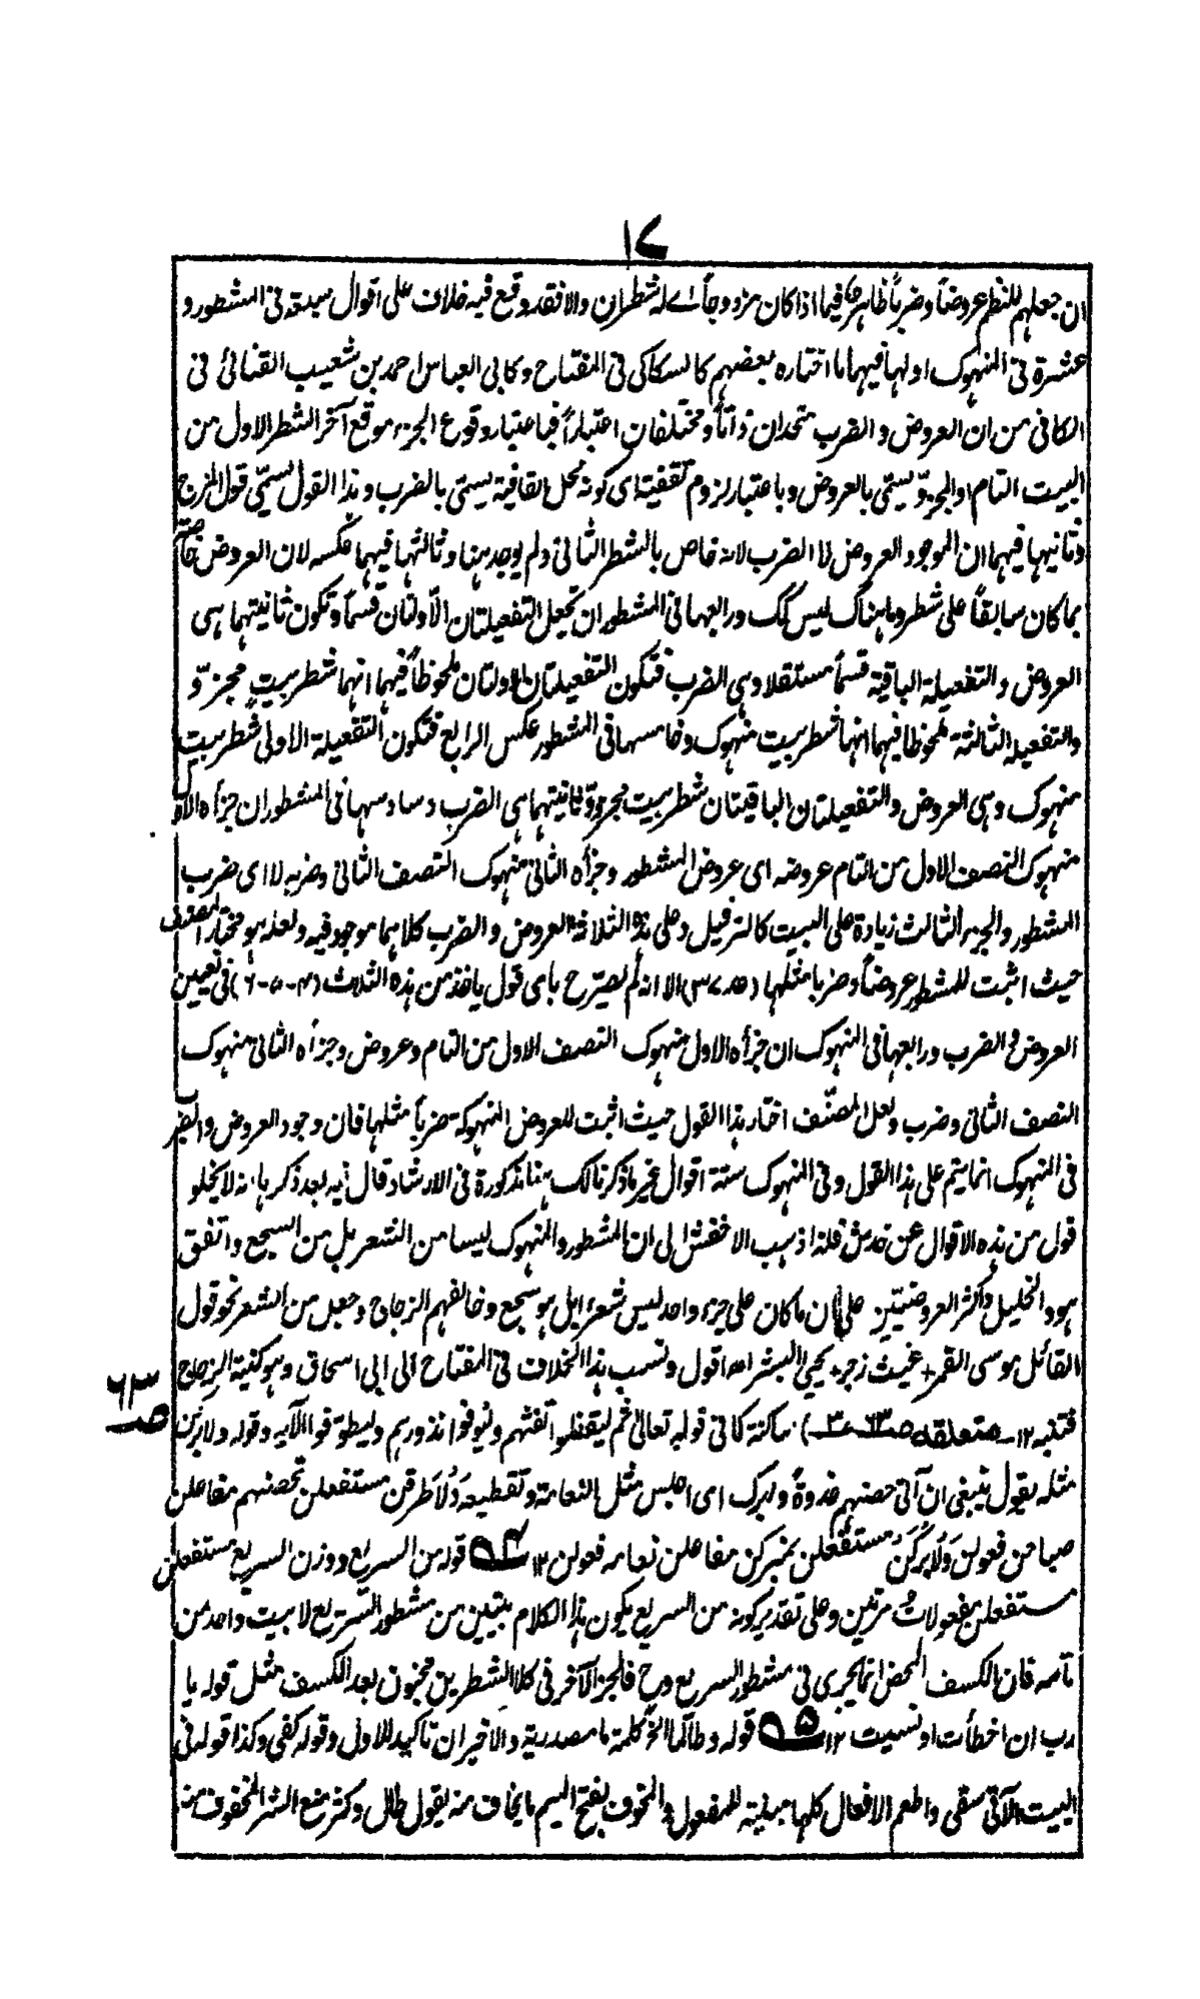 ١٧
ان جعلهم للنظم عروضاً وضرباً ظاهر فيما اذا كان مزدوجاً اے له شطران والا فقد وقع فيه خلاف على اقوال سبعة فى المشطور و
عشرة فى المنهوك اولها فيهما ما اختاره بعضهم كالسكاكى فى المفتاح وكابى العباس احمد بن شعيب القنائى فى
الكافى من ان العروض والضرب متحدان ذاتاً ومختلفان اعتباراً فباعتبار وقوع الجزء موقع آخر الشطر الاول من
البيت التام او المجزوّ يسمّى بالعروض وباعتبار لزوم تقفيته اى كونه محل القافية يسمّى بالضرب وهذا القول يسمّى قول المزج
وثانيها فيهما ان الموجود العروض لا الضرب لانه خاص بالشطر الثانى ولم يوجد هنا وثالثها فيهما عكسه لان العروض خاصة
بما كان سابقاً على شطر وما هناك ليس كك ورابعها فى المشطور ان تجعل التفعيلتان الاولتان قسماً وتكون ثانيتهما هى
العروض والتفعيلة الباقية قسماً مستقلا وهى الضرب فتكون التفعيلتان الاولتان ملحوظاً فيهما انهما شطر بيتٍ مجزوّ
والتفعيله الثالثة ملحوظا فيها انها شطر بيت منهوك وخامسها فى المشطور عكس الرابع فتكون التفعيلة الاولى شطر بيت
منهوك وهى العروض والتفعيلتان الباقيتان شطر بيت مجزوّ وثانيتهما هى الضرب وسادسها فى المشطور ان جزأه الاول
منهوك النصف الاول من التام عروضه اى عروض المشطور وجزأه الثانى منهوك النصف الثانى وضربه لا اى ضرب
المشطور والجزء الثالث زيادة على البيت كالترفيل وعلى هذه الثلاثة العروض والضرب كلاهما موجود فيه ولعله هو مختار المصنف
حيث اثبت للمشطور عروضاً وضربا مثلها (ص٣٧) الا انه لم يصرّح باى قول ياخذ من هذه الثلاث (٤-٥-٦) فى تعيين
العروض والضرب ورابعها فى المنهوك ان جزأه الاول منهوك النصف الاول من التام وعروض وجزأه الثانى منهوك
النصف الثانى وضرب ولعل المصنّف اختار هذا القول حيث اثبت للعروض المنهوكة ضرباً مثلها فان وجود العروض والضرب
فى المنهوك انما يتم على هذا القول وفى المنهوك ستة اقوال غير ما ذكرنا لك هنا مذكورة فى الارشاد قال فيه بعد ذكرها انه لا يخلو
قول من هذه الاقوال عن خدش فلذا ذهب الاخفش الى ان المشطور والمنهوك ليسا من الشعر بل من السجع واتفق
هو والخليل واكثر العروضيّين على ان ما كان على جزء واحد ليس شعرا بل هو سجع وخالفهم الزجاج وجعل من الشعر نحو قول
القائل موسى القمر + غيث زجر + يحيى البشر اھ اقول ونسب هذا الخلاف فى المفتاح الى ابى اسحاق وهو كنية الزجاج
فتنبه ١٢ـ متعلقه ص٦٣ـ٣ـ) ساكنة كما فى قوله تعالى ثم ليقضوا تفثهم وليوفوا نذورهم وليطوّفوا الآيه وقوله ولابركن
ص٦٣
مثله يقول ينبغى ان آتى حصنهم غدوةً ولبرك اى اجلس مثل النعامة وتقطيعه وَلُاَطرقن مستفعلن حصنهم مفاعلن
صباحن فعولن وَلَابركن مستفعلن بمبركن مفاعلن نعامه فعولن ١٢ ٤ قوله من السريع ووزن السريع مستفعلن
مستفعلن مفعولاتُ مرّتين وعلى تقدير كونه من السريع يكون هذا الكلام بيتين من مشطور السّريع لا بيت واحد من
تامه فان الكسف المحض انما يجرى فى مشطور السريع وح فالجزء الآخر فى كلا الشطرين مخبون بعد الكسف مثل قوله يا
رب ان اخطأت او نسيت ١٢ ٥ قوله وطالما الخ كلمة ما مصدرية والاخيران تاكيد للاولى وقوله كفى وكذا قوله فى
البيت الآتى سقى واطعم الافعال كلها مبنية للمفعول والمخوف بفتح الميم ما يخاف منه يقول طال وكثر منع الشر المخوف منه